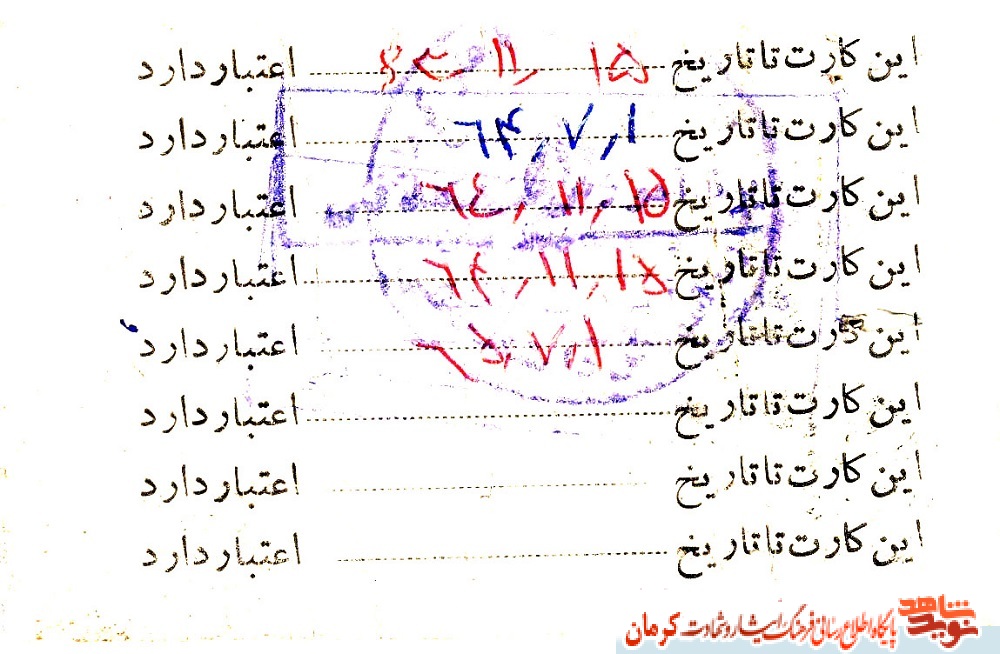 این کارت تا تاریخ ۱۵ ر ۱۱ ر ۶۳ اعتبار دارد
این کارت تا تاریخ ۱ ر ۷ ر ۶۴ اعتبار دارد
این کارت تا تاریخ ۱۵ ر ۱۱ ر ٦٤ اعتبار دارد
این کارت تا تاریخ ۱۵ ر ۱۱ ر ۶۴ اعتبار دارد
این کارت تا تاریخ ۱ ر ۷ ر ۶۵ اعتبار دارد
این کارت تا تاریخ اعتبار دارد
این کارت تا تاریخ اعتبار دارد
این کارت تا تاریخ اعتبار دارد
نوید شاهد پایگاه اطلاع رسانی فرهنگ ایثار و شهادت کرمان